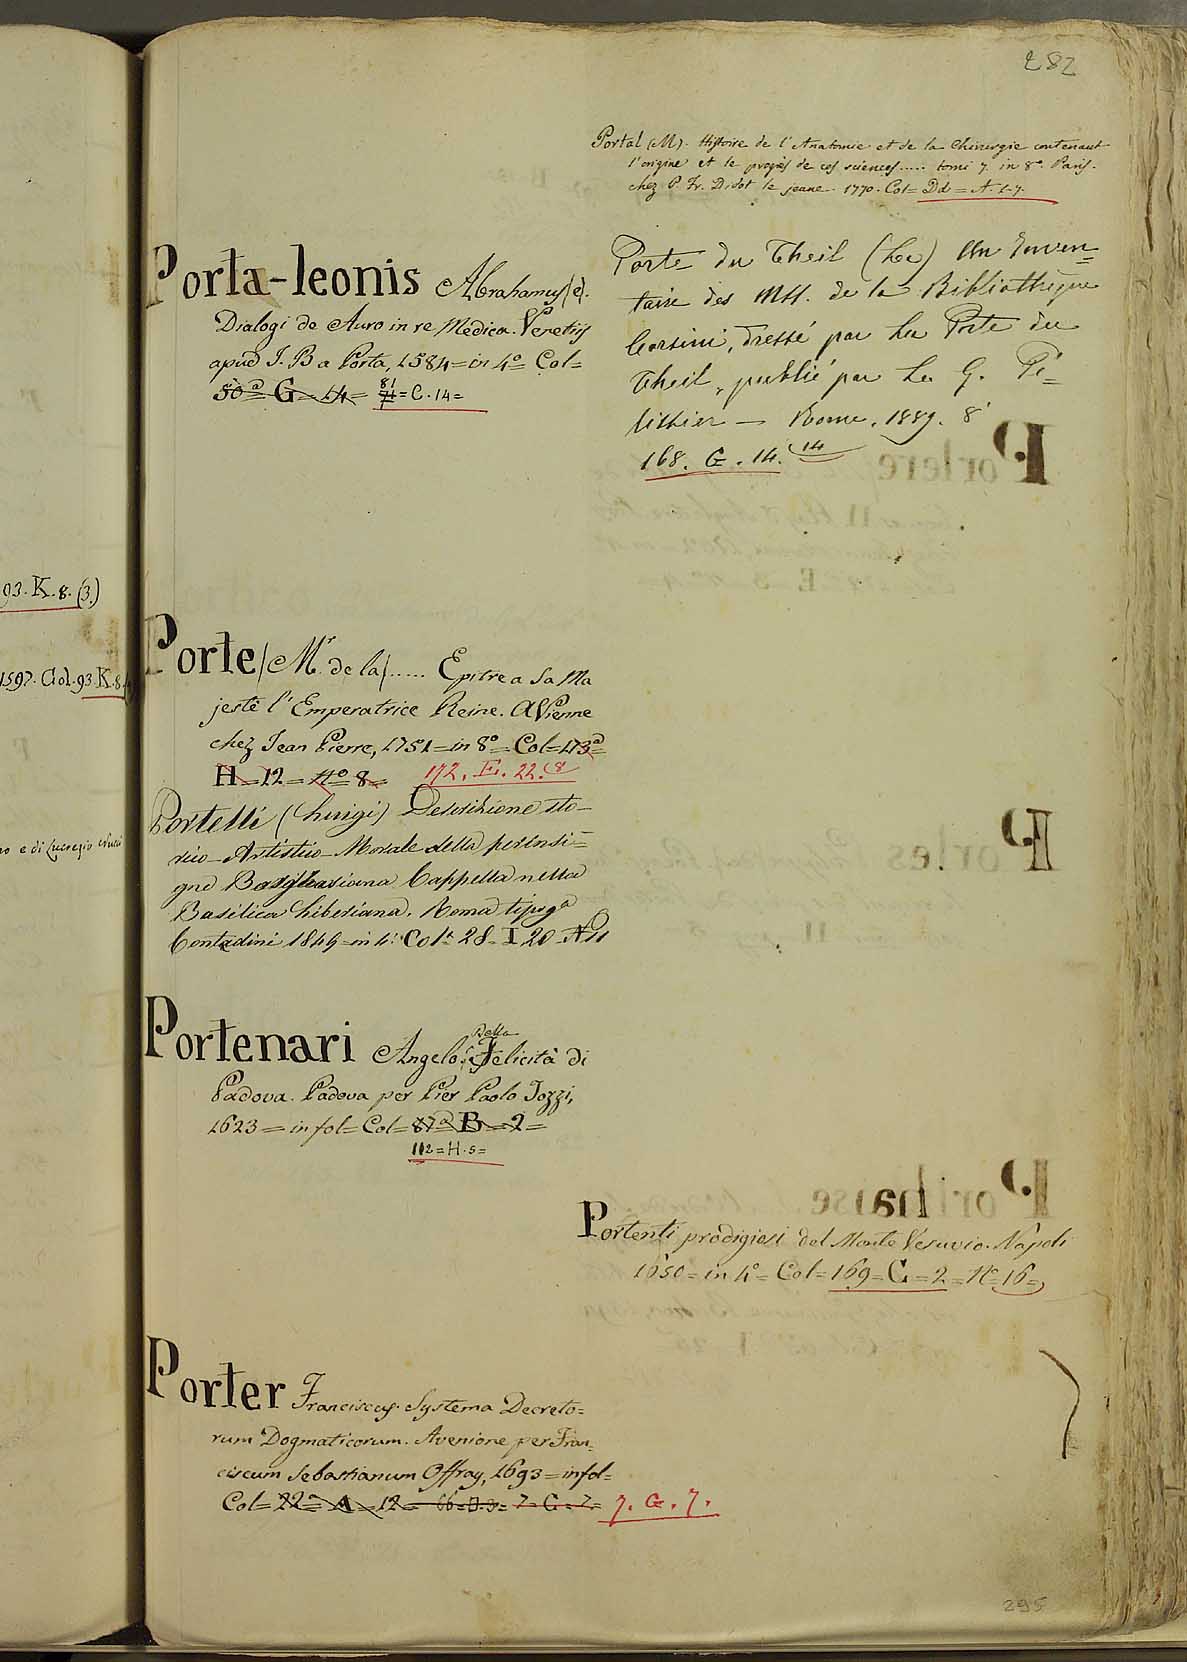 282
Portal (M). Histoire de l'Anatomie et de la Chirurgie contenant
l'origine et le progrès de ces sciences..... tomi 7. in 8.º Paris.
chez P. Fr. Didot le jeune. 1770. Col= Dd = A. 1-7.
Porta-leonis Abrahamus (e).
Dialogi de Auro in re Medica. Venetijs
apud I. B a Porta, 1584=in 4º= Col=
50ª= G = 14= 81 = C. 14=
Porte du Theil (La) Un Inven=
taire des MSS. de la Bibliothèque
Corsini, dressé par La Porte du
Theil, publié par L. G. Pé=
lissier — Rome. 1889. 8º
168. G. 14. 14
93. K. 8. (3.)
1597. Col. 93. K. 8.
no e di Lucrezio
Porte (Mr. de la)..... Epitre a Sa Ma
jestè l'Emperatrice Reine. A Vienne
chez Jean Pierre, 1751=in 8º= Col=173ª=
H=12=Nº 8= 172. E. 22. (8
Portelli (Luigi) Descrizione sto=
rico-Artistico-Morale della perinsi=
gne Borghesiana Cappella nella
Basilica Liberiana. Roma tipogª
Contedini 1849=in 4º Colª 28=I 20 N 11
Portenari Angelo Della Felicità di
Padova. Padova per Pier Paolo Tozzi,
1623=in fol= Col=87ª B=2=
112=H.5=
Portenti prodigiosi del Monte Vesuvio. Napoli
1650=in 4º= Col=169=G=2=Nº 16=
Porter Franciscus. Systema Decreto=
rum Dogmaticorum. Avenione per Fran=
ciscum Sebastianum Offray, 1693=infol=
Col=22ª= A=12= 66=D.3= 7=G=7= 7. G. 7.
295